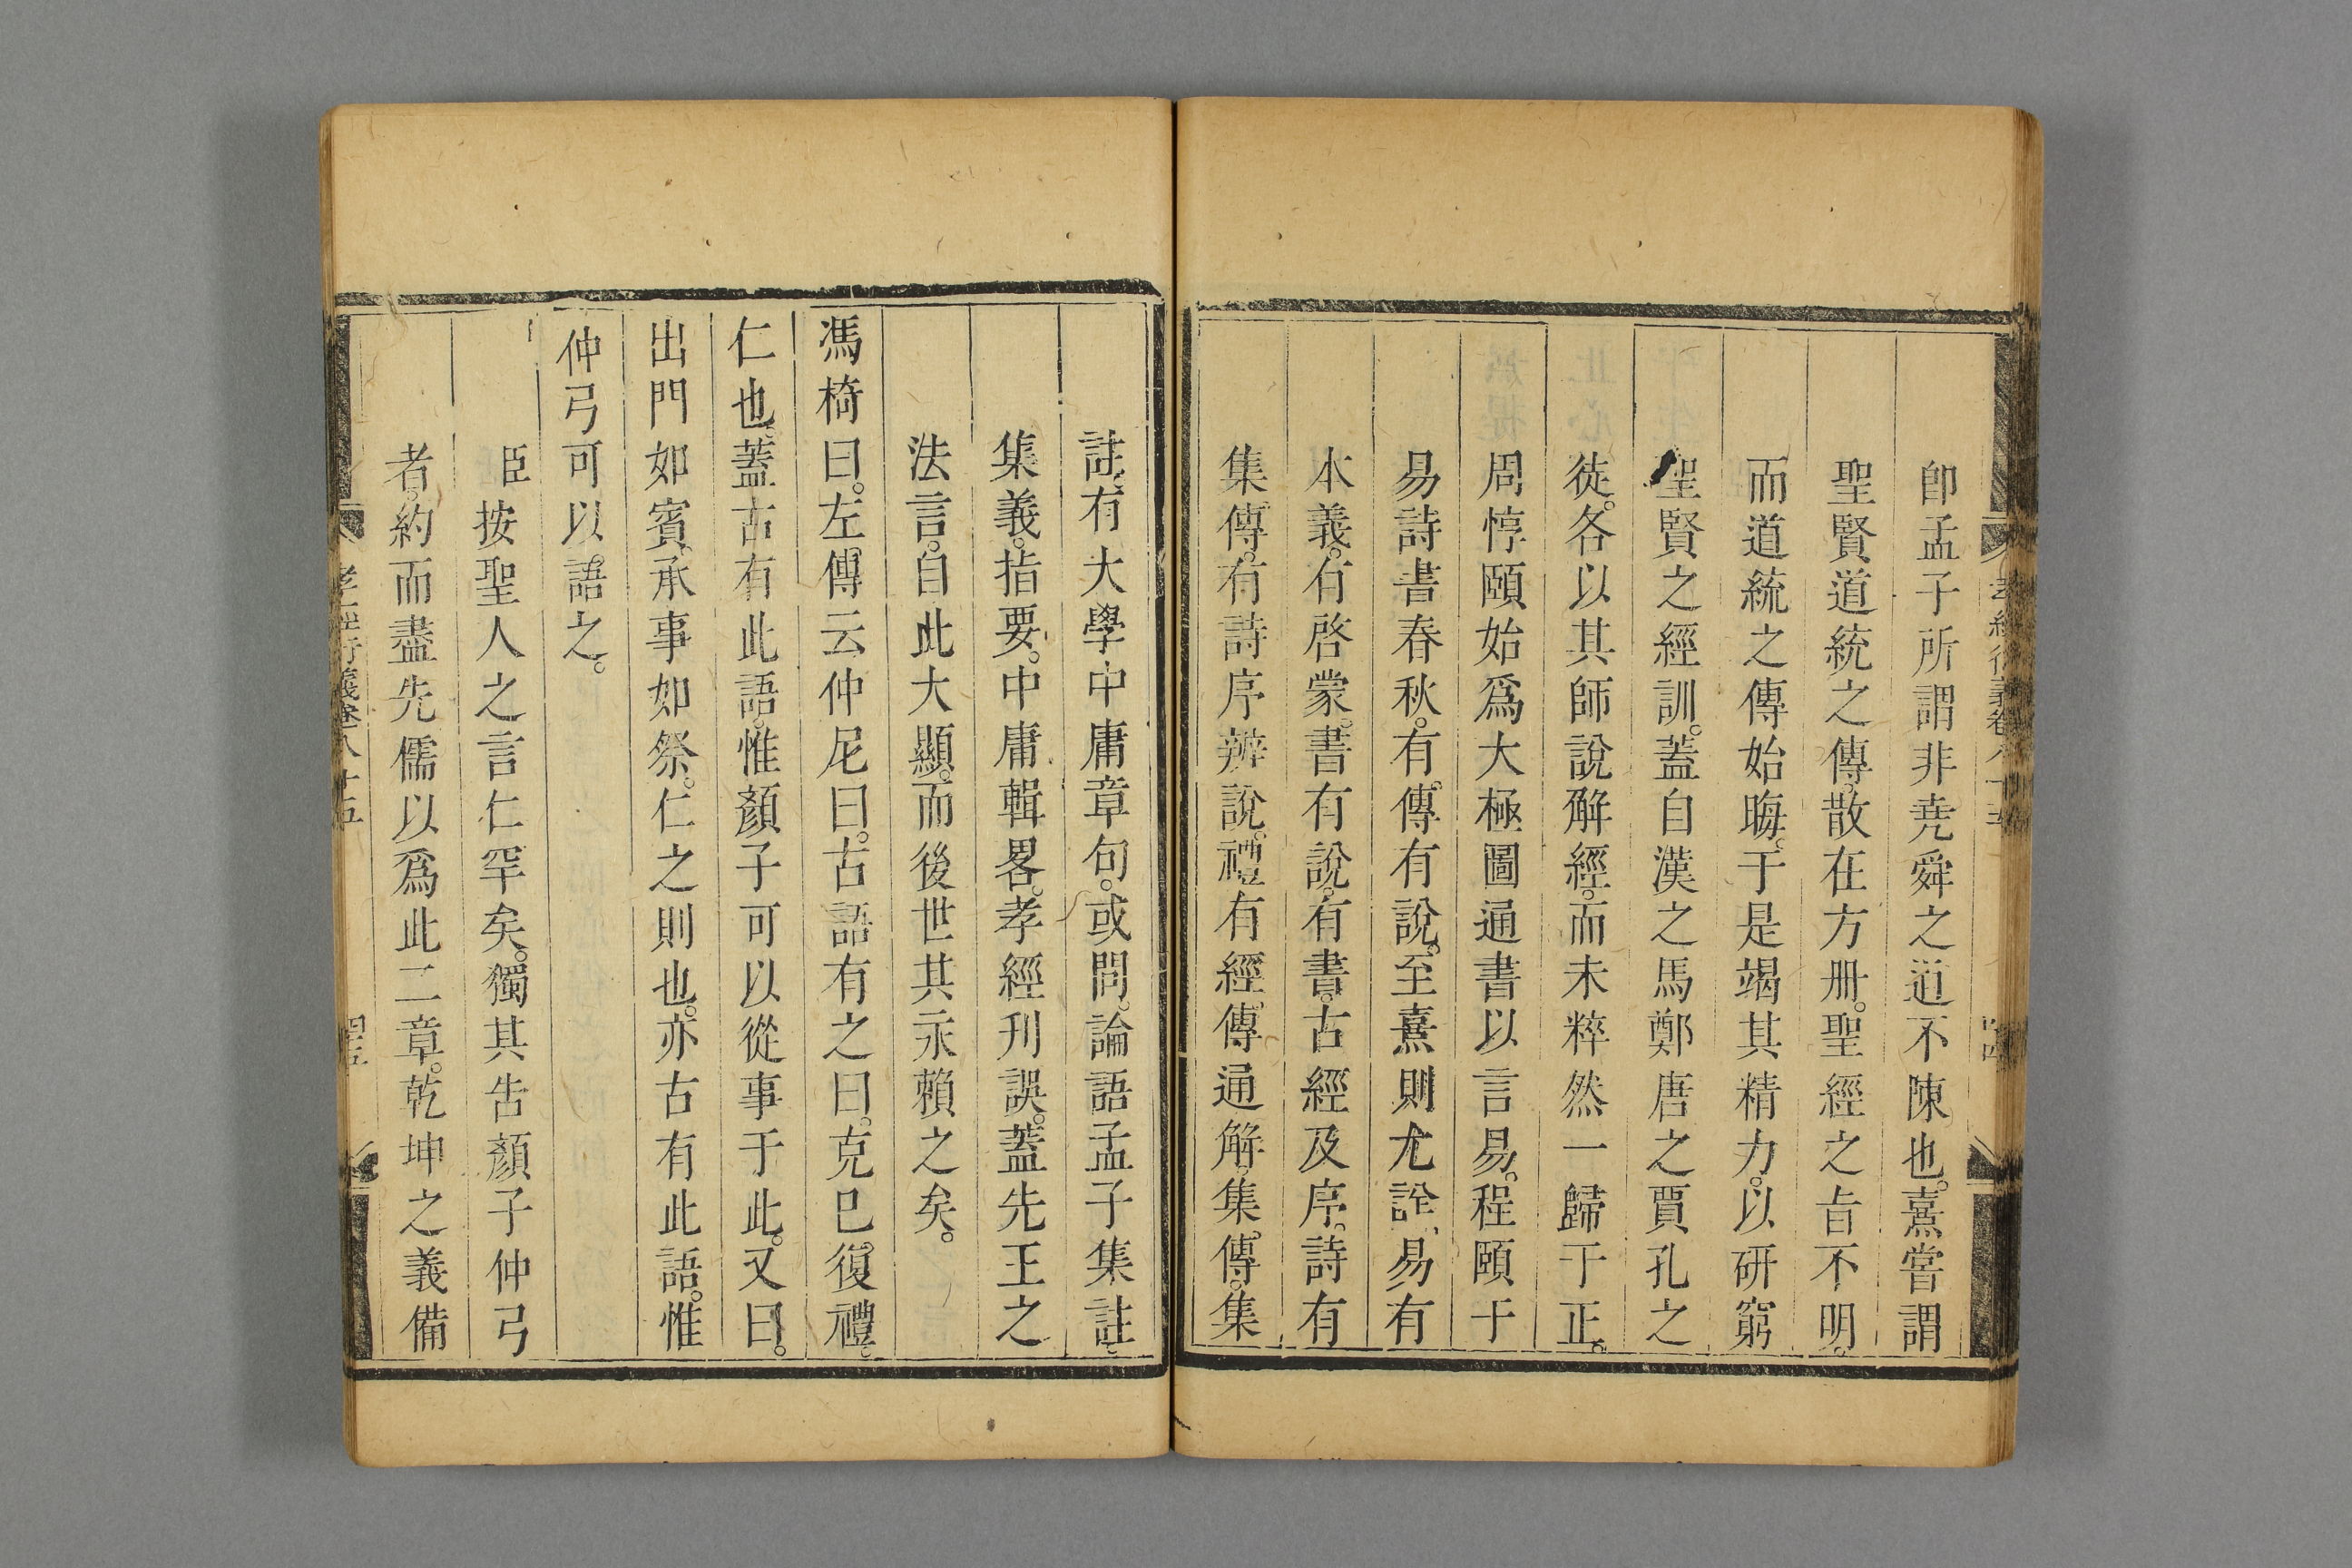 卽孟子所謂非堯舜之道不陳也。熹嘗謂
聖賢道統之傳。散在方册。聖經之旨不明。
而道統之傳始晦。于是竭其精力。以研窮
聖賢之經訓。蓋自漢之馬鄭唐之賈孔之
徒。各以其師說解經。而未粹然一歸于正。
周惇頤始爲大極圖通書以言易。程頤于
易詩書春秋。有。傳有說。至熹則尤詮、易有
本義。有啓蒙。書有說。有書。古經及序。詩有
集。傳。有詩序辨說。禮有經。傳通解。集。傳。集
註。有大學中庸章句。或問。論語孟子集註。
集義。指要。中庸輯畧。孝經刋誤。蓋先王之
法言。自此大顯。而後世其永賴之矣。
馮椅曰。左傳云仲尼曰。古語有之曰。克已。復禮。
仁也。蓋古有此語。惟顏子可以從事于此。又曰。
出門如賓。承事如祭。仁之則也。亦古有此語。惟
仲弓可以。語之。
臣按聖人之言仁罕矣。獨其告顏子仲弓
者。約而盡先儒以爲此二章。乾坤之義備
孝經衍義卷八十五